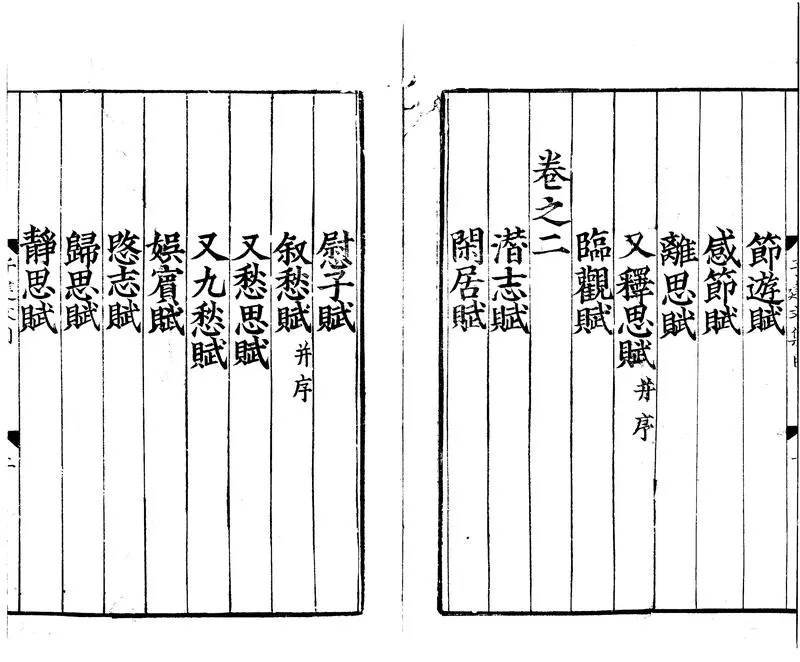 節遊賦
感節賦
離思賦
又釋思賦 并序
臨觀賦
卷之二
潛志賦
閑居賦
慰子賦
叙愁賦 并序
又愁思賦
又九愁賦
娛賔賦
愍志賦
歸思賦
靜思賦